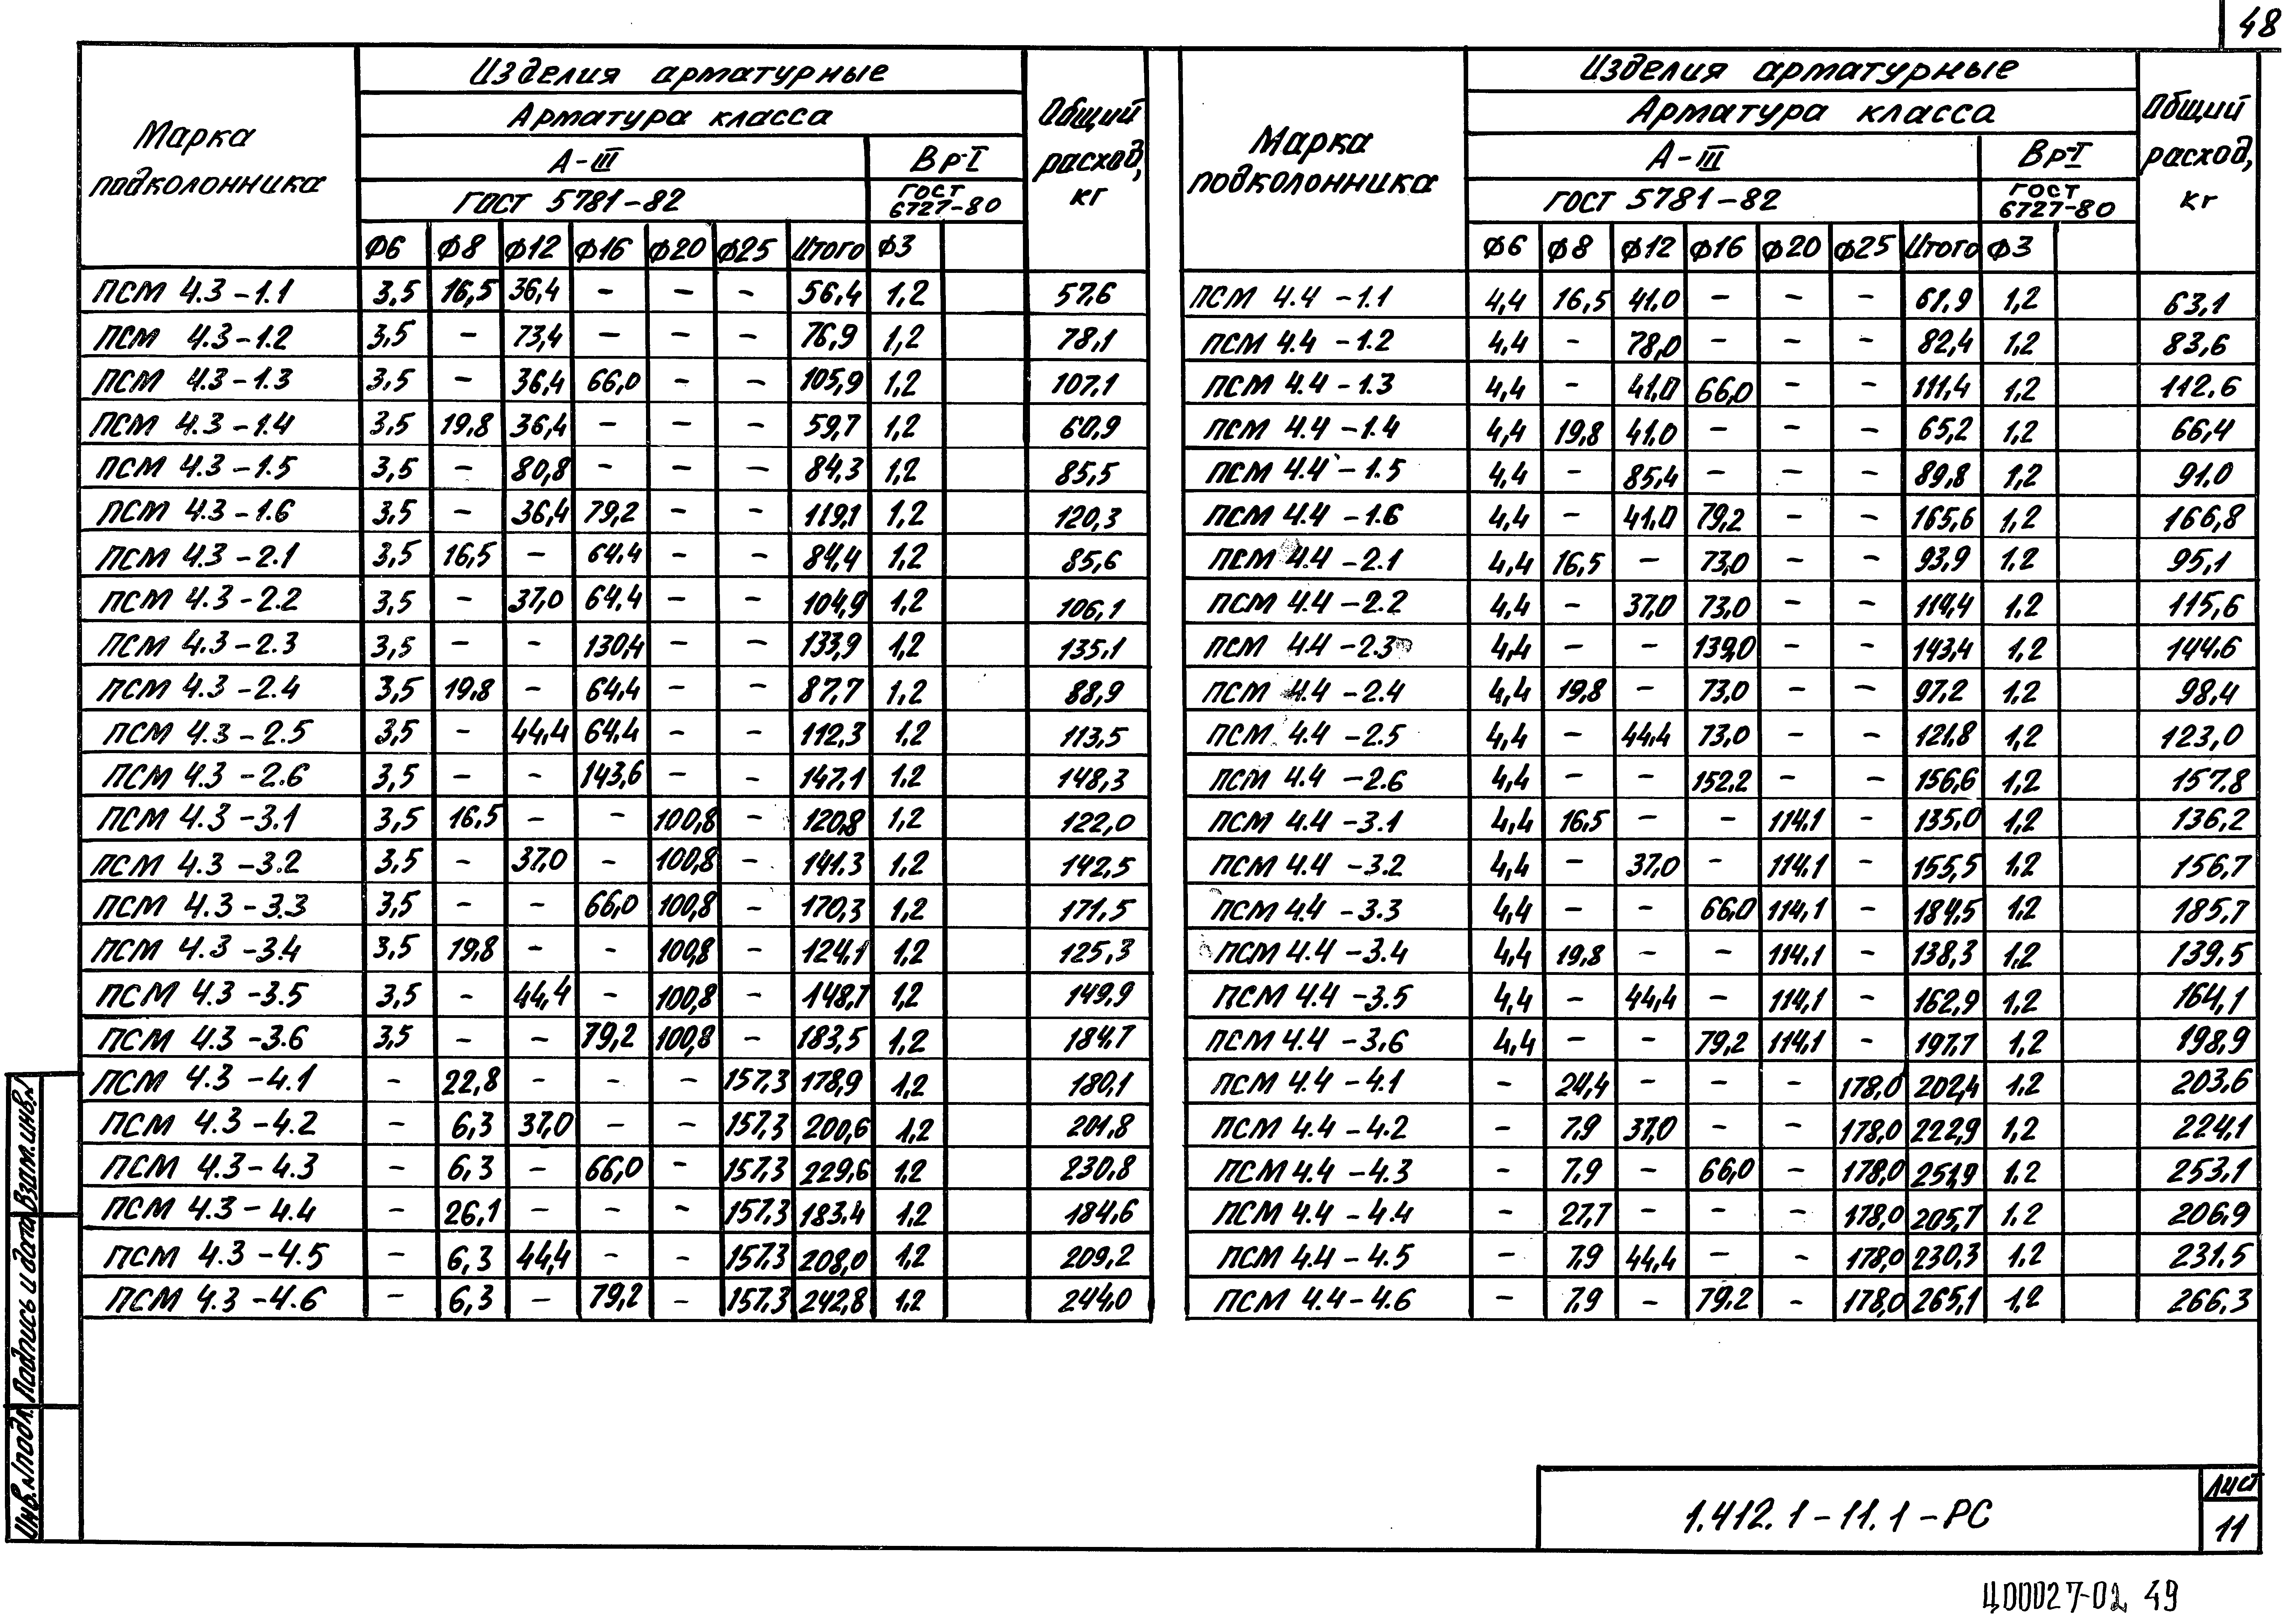 48
Марка подколонника
Изделия арматурные
Арматура класса
А-III Вр-I
ГОСТ 5781-82 ГОСТ 6727-80
Общий расход, кг
ϕ6 ϕ8 ϕ12 ϕ16 ϕ20 ϕ25 Итого ϕ3
ПСМ 4.3-1.1 3,5 16,5 36,4 - - - 56,4 1,2 57,6
ПСМ 4.3-1.2 3,5 - 73,4 - - - 76,9 1,2 78,1
ПСМ 4.3-1.3 3,5 - 36,4 66,0 - - 105,9 1,2 107,1
ПСМ 4.3-1.4 3,5 19,8 36,4 - - - 59,7 1,2 60,9
ПСМ 4.3-1.5 3,5 - 80,8 - - - 84,3 1,2 85,5
ПСМ 4.3-1.6 3,5 - 36,4 79,2 - - 119,1 1,2 120,3
ПСМ 4.3-2.1 3,5 16,5 - 64,4 - - 84,4 1,2 85,6
ПСМ 4.3-2.2 3,5 - 37,0 64,4 - - 104,9 1,2 106,1
ПСМ 4.3-2.3 3,5 - - 130,4 - - 133,9 1,2 135,1
ПСМ 4.3-2.4 3,5 19,8 - 64,4 - - 87,7 1,2 88,9
ПСМ 4.3-2.5 3,5 - 44,4 64,4 - - 112,3 1,2 113,5
ПСМ 4.3-2.6 3,5 - - 143,6 - - 147,1 1,2 148,3
ПСМ 4.3-3.1 3,5 16,5 - - 100,8 - 120,8 1,2 122,0
ПСМ 4.3-3.2 3,5 - 37,0 - 100,8 - 141,3 1,2 142,5
ПСМ 4.3-3.3 3,5 - - 66,0 100,8 - 170,3 1,2 171,5
ПСМ 4.3-3.4 3,5 19,8 - - 100,8 - 124,1 1,2 125,3
ПСМ 4.3-3.5 3,5 - 44,4 - 100,8 - 148,7 1,2 149,9
ПСМ 4.3-3.6 3,5 - - 79,2 100,8 - 183,5 1,2 184,7
ПСМ 4.3-4.1 - 22,8 - - - 157,3 178,9 1,2 180,1
ПСМ 4.3-4.2 - 6,3 37,0 - - 157,3 200,6 1,2 201,8
ПСМ 4.3-4.3 - 6,3 - 66,0 - 157,3 229,6 1,2 230,8
ПСМ 4.3-4.4 - 26,1 - - - 157,3 183,4 1,2 184,6
ПСМ 4.3-4.5 - 6,3 44,4 - - 157,3 208,0 1,2 209,2
ПСМ 4.3-4.6 - 6,3 - 79,2 - 157,3 242,8 1,2 244,0
Марка подколонника
Изделия арматурные
Арматура класса
А-III Вр-I
ГОСТ 5781-82 ГОСТ 6727-80
Общий расход, кг
ϕ6 ϕ8 ϕ12 ϕ16 ϕ20 ϕ25 Итого ϕ3
ПСМ 4.4-1.1 4,4 16,5 41,0 - - - 61,9 1,2 63,1
ПСМ 4.4-1.2 4,4 - 78,0 - - - 82,4 1,2 83,6
ПСМ 4.4-1.3 4,4 - 41,0 66,0 - - 111,4 1,2 112,6
ПСМ 4.4-1.4 4,4 19,8 41,0 - - - 65,2 1,2 66,4
ПСМ 4.4-1.5 4,4 - 85,4 - - - 89,8 1,2 91,0
ПСМ 4.4-1.6 4,4 - 41,0 79,2 - - 165,6 1,2 166,8
ПСМ 4.4-2.1 4,4 16,5 - 73,0 - - 93,9 1,2 95,1
ПСМ 4.4-2.2 4,4 - 37,0 73,0 - - 114,4 1,2 115,6
ПСМ 4.4-2.3 4,4 - - 139,0 - - 143,4 1,2 144,6
ПСМ 4.4-2.4 4,4 19,8 - 73,0 - - 97,2 1,2 98,4
ПСМ 4.4-2.5 4,4 - 44,4 73,0 - - 121,8 1,2 123,0
ПСМ 4.4-2.6 4,4 - - 152,2 - - 156,6 1,2 157,8
ПСМ 4.4-3.1 4,4 16,5 - - 114,1 - 135,0 1,2 136,2
ПСМ 4.4-3.2 4,4 - 37,0 - 114,1 - 155,5 1,2 156,7
ПСМ 4.4-3.3 4,4 - - 66,0 114,1 - 184,5 1,2 185,7
ПСМ 4.4-3.4 4,4 19,8 - - 114,1 - 138,3 1,2 139,5
ПСМ 4.4-3.5 4,4 - 44,4 - 114,1 - 162,9 1,2 164,1
ПСМ 4.4-3.6 4,4 - - 79,2 114,1 - 197,7 1,2 198,9
ПСМ 4.4-4.1 - 24,4 - - - 178,0 202,4 1,2 203,6
ПСМ 4.4-4.2 - 7,9 37,0 - - 178,0 222,9 1,2 224,1
ПСМ 4.4-4.3 - 7,9 - 66,0 - 178,0 251,9 1,2 253,1
ПСМ 4.4-4.4 - 27,7 - - - 178,0 205,7 1,2 206,9
ПСМ 4.4-4.5 - 7,9 44,4 - - 178,0 230,3 1,2 231,5
ПСМ 4.4-4.6 - 7,9 - 79,2 - 178,0 265,1 1,2 266,3
Инв.№подл. Подпись и дата Взам.инв.№
1.412.1-11.1-РС
Лист
11
Ц00027-02 49